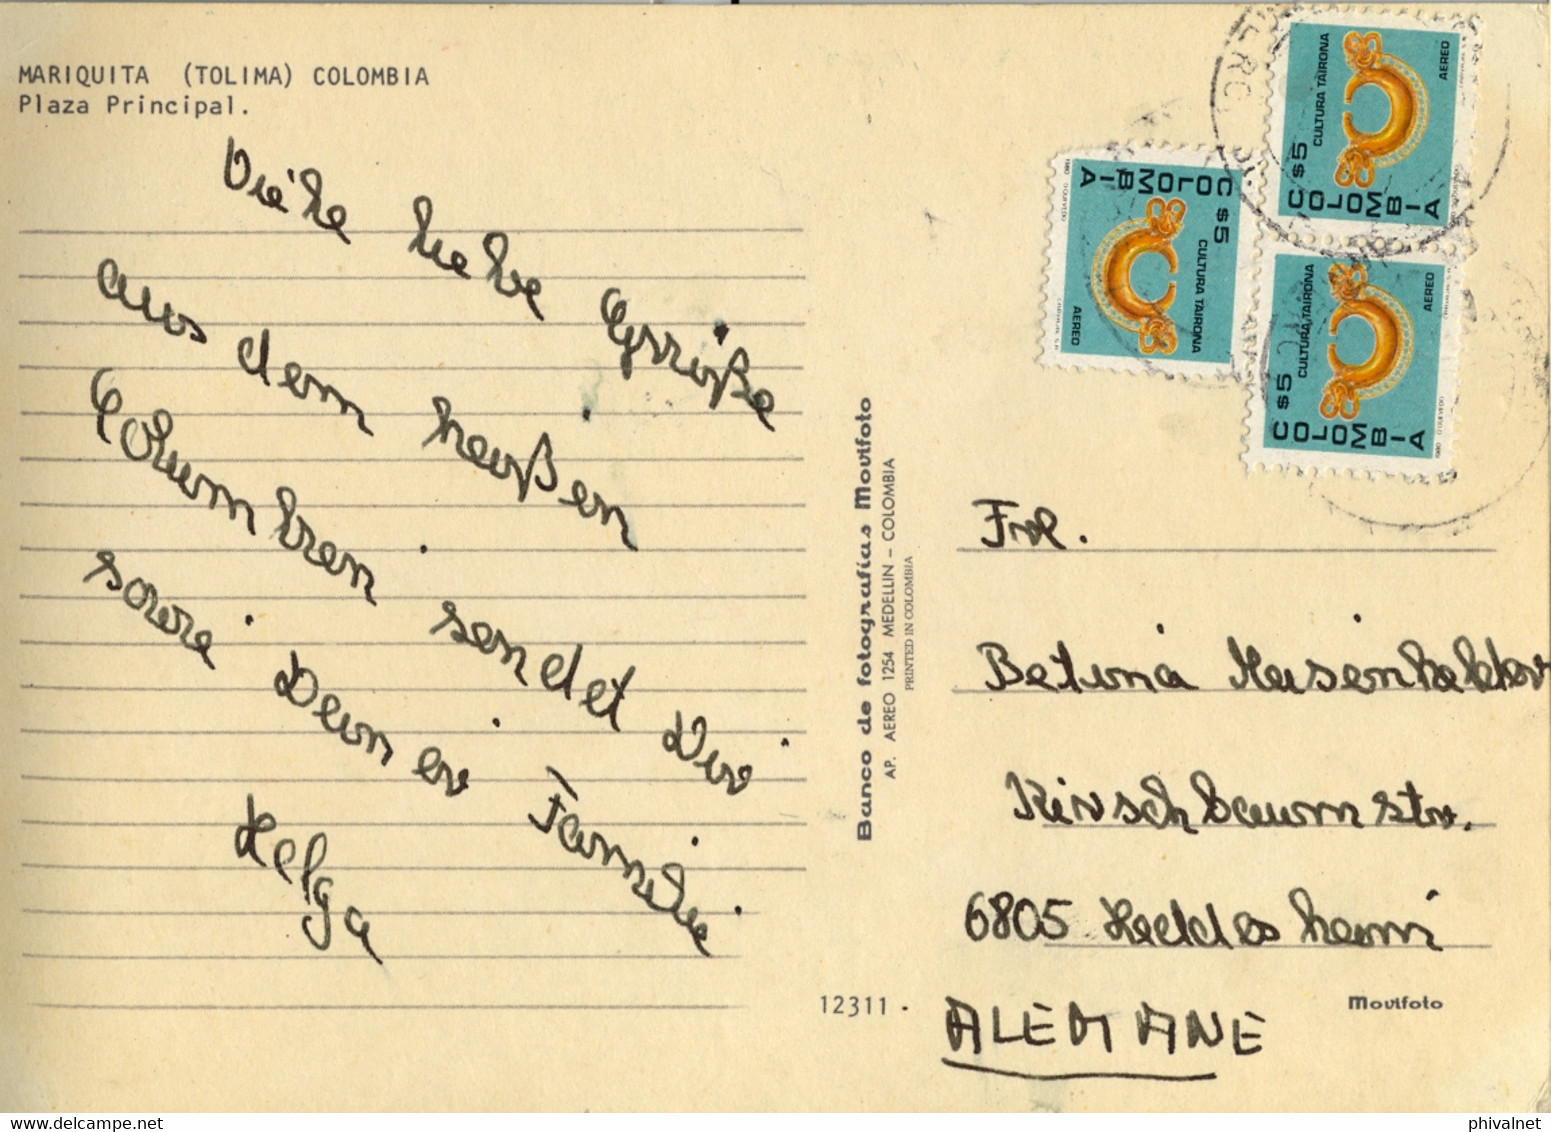 MARIQUITA (TOLIMA) COLOMBIA
Plaza Principal.
Viele liebe Grüße
aus dem heißen
Columbien sendet Dir
sowie Deiner Familie
Helga
Banco de fotografias Movifoto
AP. AEREO 1254 MEDELLIN - COLOMBIA
PRINTED IN COLOMBIA
12311.
C $5
COLOMBIA
CULTURA TAIRONA
AEREO
C $5
COLOMBIA
CULTURA TAIRONA
AEREO
1980
C $5
COLOMBIA
CULTURA TAIRONA
AEREO
1980
Frl.
Betina
Kirschbaumstr.
6805 Heddesheim
ALEMANE
Movifoto
phivalnet